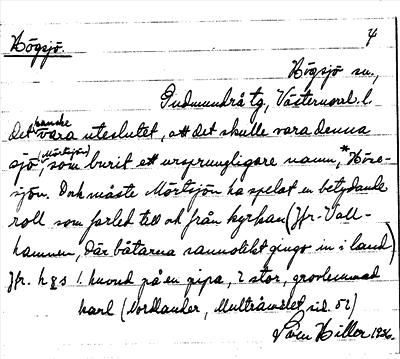 Högsjö. 4
Högsjö sn.,
Gudmundrå tg, Västernorrl. l.
kanske
Det vara uteslutet, att det skulle vara denna
(Mörtsjön)
sjö, som burit ett ursprungligare namn, *Höge-
sjön. Dock måste Mörtsjön ha spelat en betydande
roll som farled till och från kyrkan (jfr Vall-
hammen, där båtarna sannolikt gingo in i land)
Jfr. högs 1. huvud på en pipa, 2 stor, grovlemmad
karl (Nordlander, Multråmålet sid. 52)
Sven Hiller 1936.